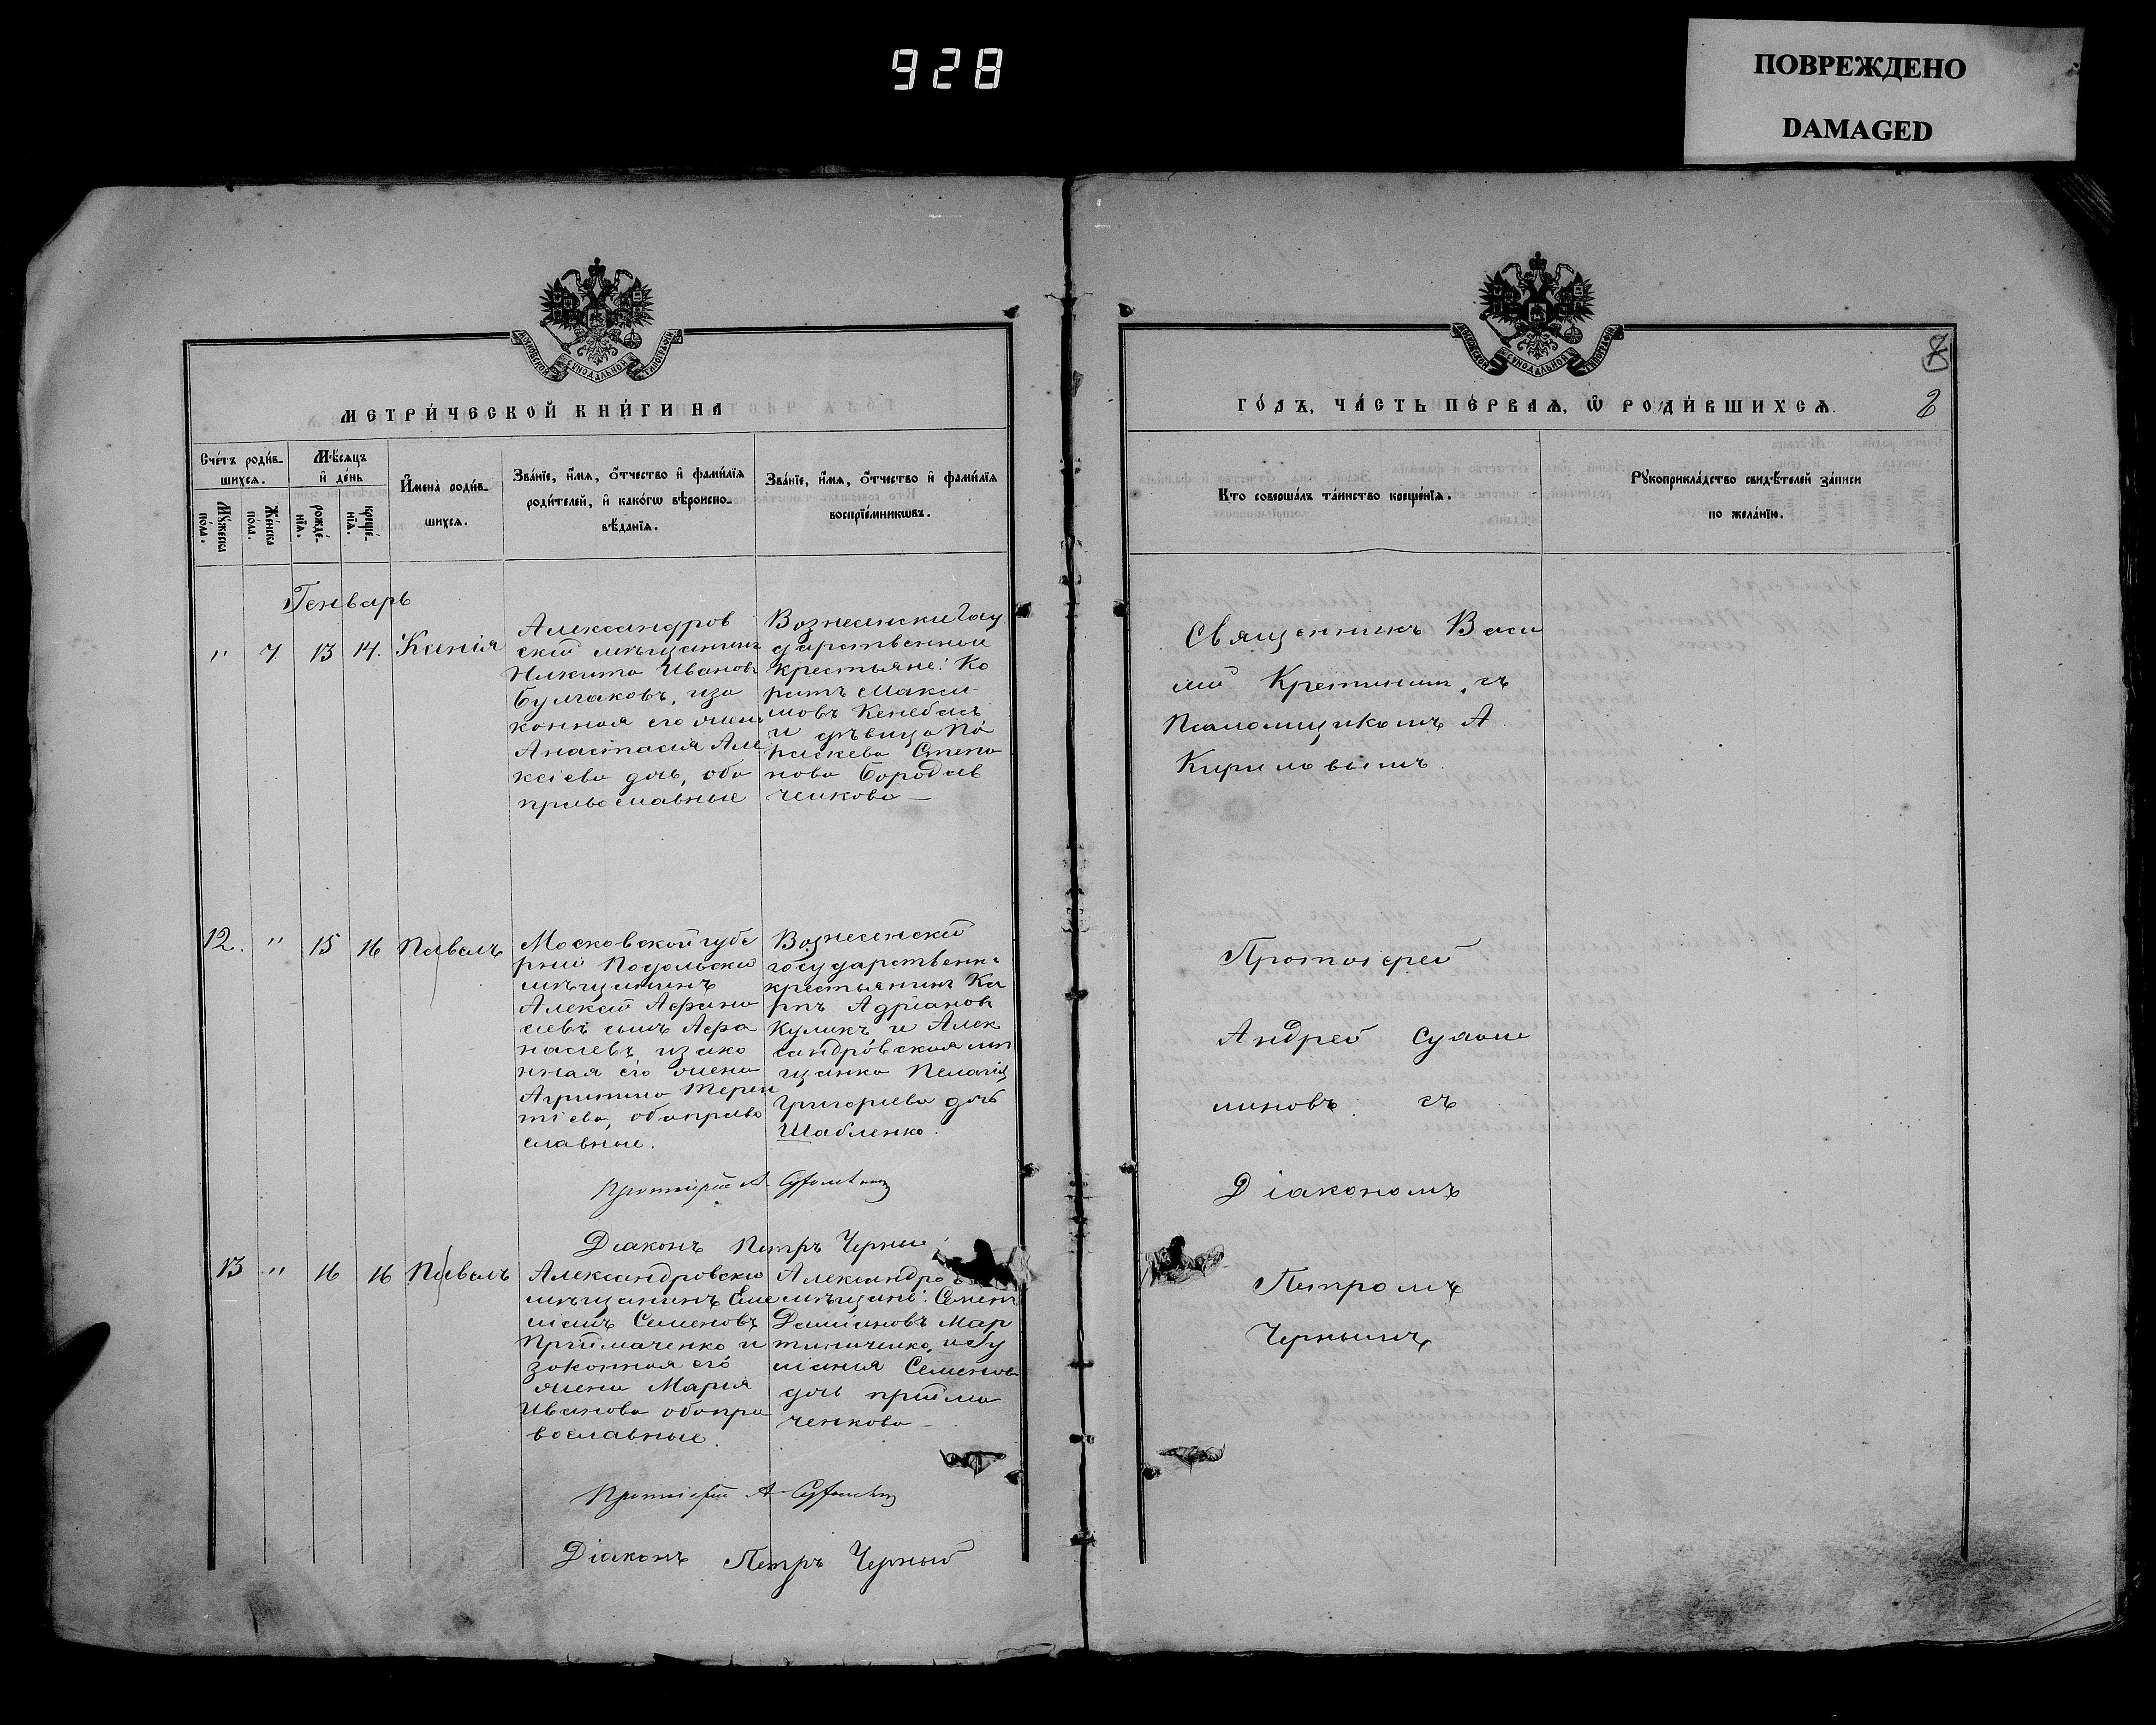 928
ПОВРЕЖДЕНО
DAMAGED
МОСКОВСКОЙ СѴНОДАЛЬНОЙ ТИПОГРАФІИ
МЕТРИ́ЧЕСКОЙ КНИ́ГИ НА
Сче́тъ роди́в-
шихсѧ.
Мꙋ́жеска
по́ла.
Же́нска
по́ла.
Мѣ́сѧцъ
и҆ де́нь
рожде́-
нїѧ.
креще́-
нїѧ.
И҆мена̀ роди́в-
шихсѧ.
Зва́нїе, и҆́мѧ, ѻ҆́тчество и҆ фами́лїѧ
роди́телей, и҆ како́гѡ вѣроиспо-
вѣ́данїѧ.
Зва́нїе, и҆́мѧ, ѻ҆́тчество и҆ фами́лїѧ
воспрїе́мникѡвъ.
Генварь
" 7. 13 14. Ксенія
Александров
скій мѣщанинъ
Никита Ивановъ
Булгаковъ, изa
конная его жена
Анастасія Але
ксіева дочь, оба
православные
Вознесенски Госу
дарственные
Крестьяне: Ко
ратъ Макси
мовъ Кенебасъ
и дѣвица Па
раскева Степа
нова Бородав
ченкова —
12. " 15 16 Павелъ
Московской губе
рніи Подольскій
мѣщанинъ
Алексей Афана
сіевъ сынъ Афа
насіевъ, изако
нная его жена
Агрипина Терен
тіева, оба право
славные.
Вознесенскій
государственн:
крестьянинъ Ка
рпъ Адріановъ
Куликъ и Алек
сандровская мѣ
щанка Пелагія
Григоріева дочь
Шабленко.
Протоіерей А.
Діаконъ Петръ Черный
13 " 16 16 Павелъ
Александровскій
мѣщанинъ Еме
ліанъ Семеновъ
Пріймаченко и
законная его
жена Марія
Иванова оба пра
вославные.
Александро
мѣщане: Семенъ
Демьяновъ Мар
и Іу
ліанія Семенова
дочь Пріима
ченкова —
Протоіерей А
Діаконъ Петръ Черный
МОСКОВСКОЙ СѴНОДАЛЬНОЙ ТИПОГРАФІИ
7
8
ГО́ДЪ, ЧА́СТЬ ПЕ́РВАѦ, Ѡ҆ РОДИ́ВШИХСѦ.
Кто соверша́лъ та́инство креще́нїѧ.
Рꙋкоприкла́дство свидѣ́телей за́писи
по жела́нїю.
Священникъ Васи
лій Крестининъ, съ
Псаломщикомъ А.
Кириловымъ.
Протоіерей
Андрей Сулои
миновъ съ
Діакономъ
Петромъ
Чернымъ